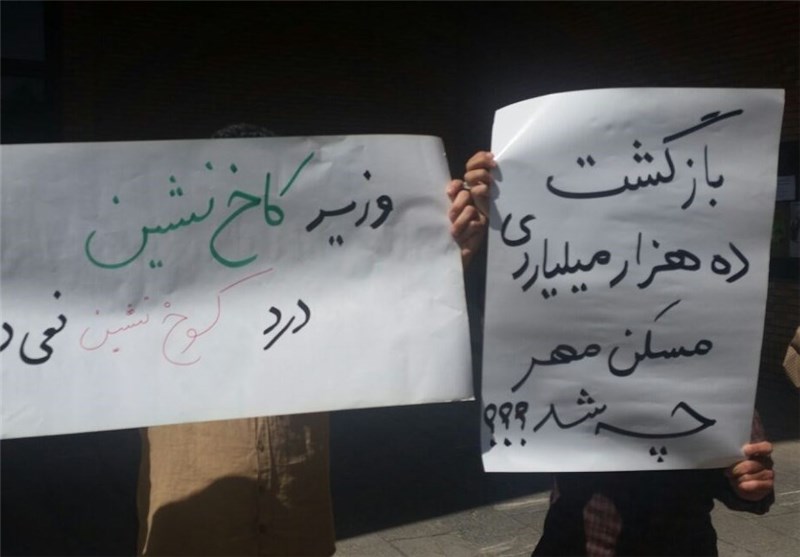 بازگشت
ده هزار میلیاردی
مسکن مهر
چه شد؟؟؟
وزیر کاخ نشین
درد کوخ نشین نمی د